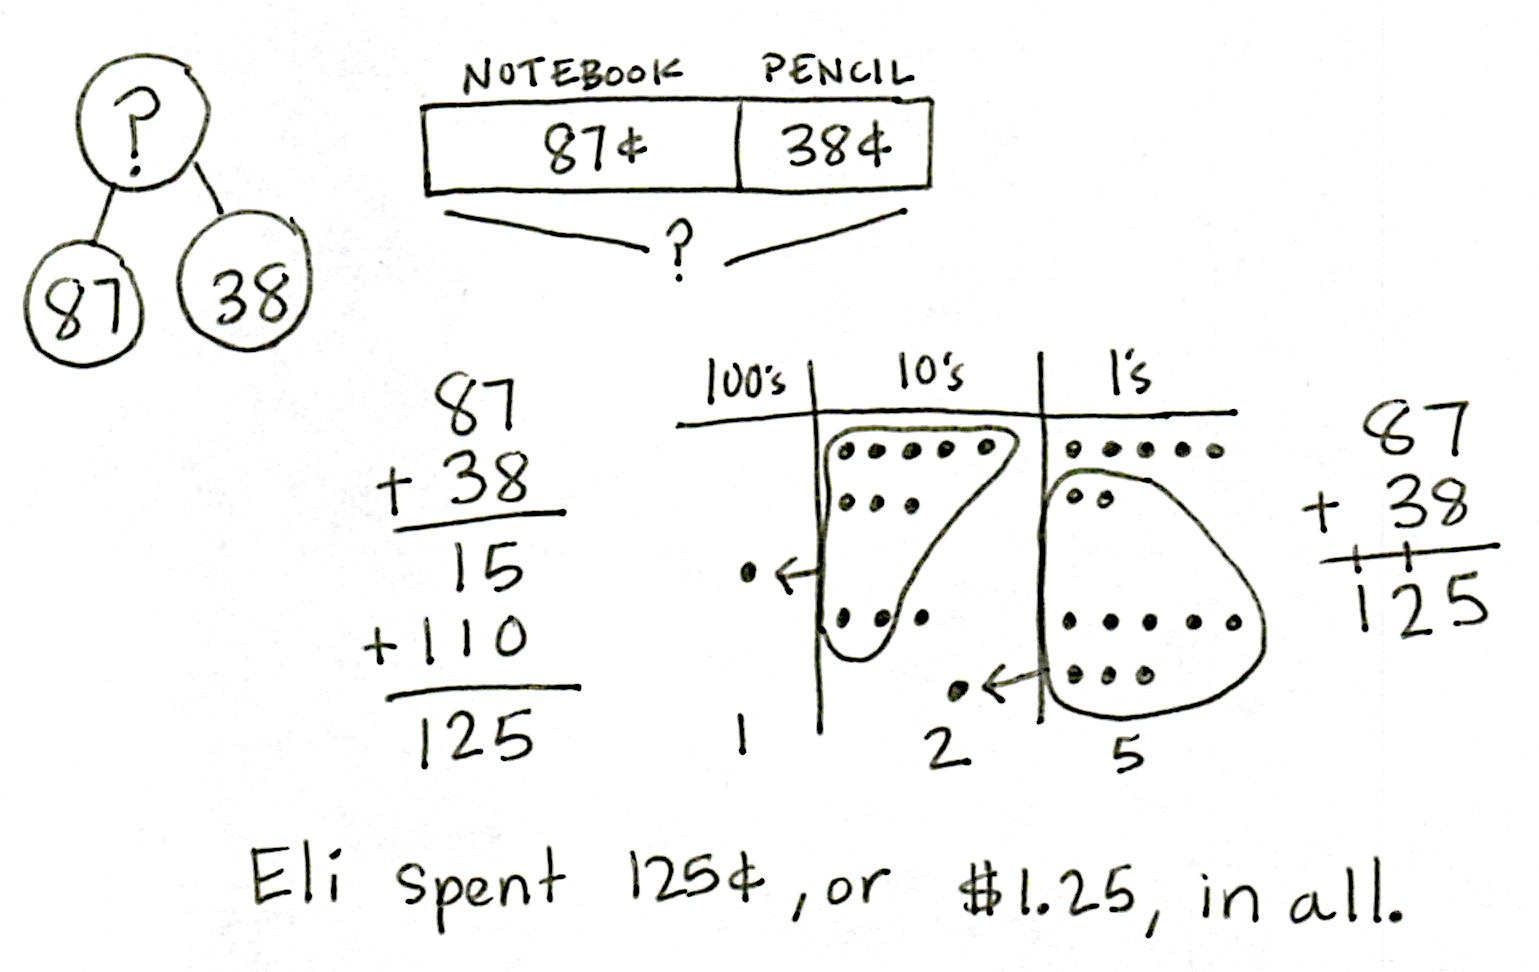 ?
87
38
NOTEBOOK PENCIL
87¢ 38¢
?
87
+ 38
15
+110
125
100's 10's 1's
1 2 5
87
+ 38
125
Eli spent 125¢, or $1.25, in all.